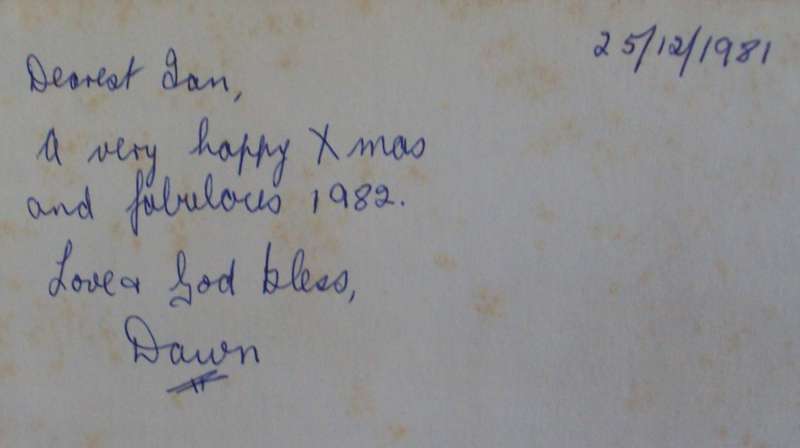 25/12/1981
Dearest Ian,
A very happy Xmas
and fabulous 1982.
Love & God bless,
Dawn